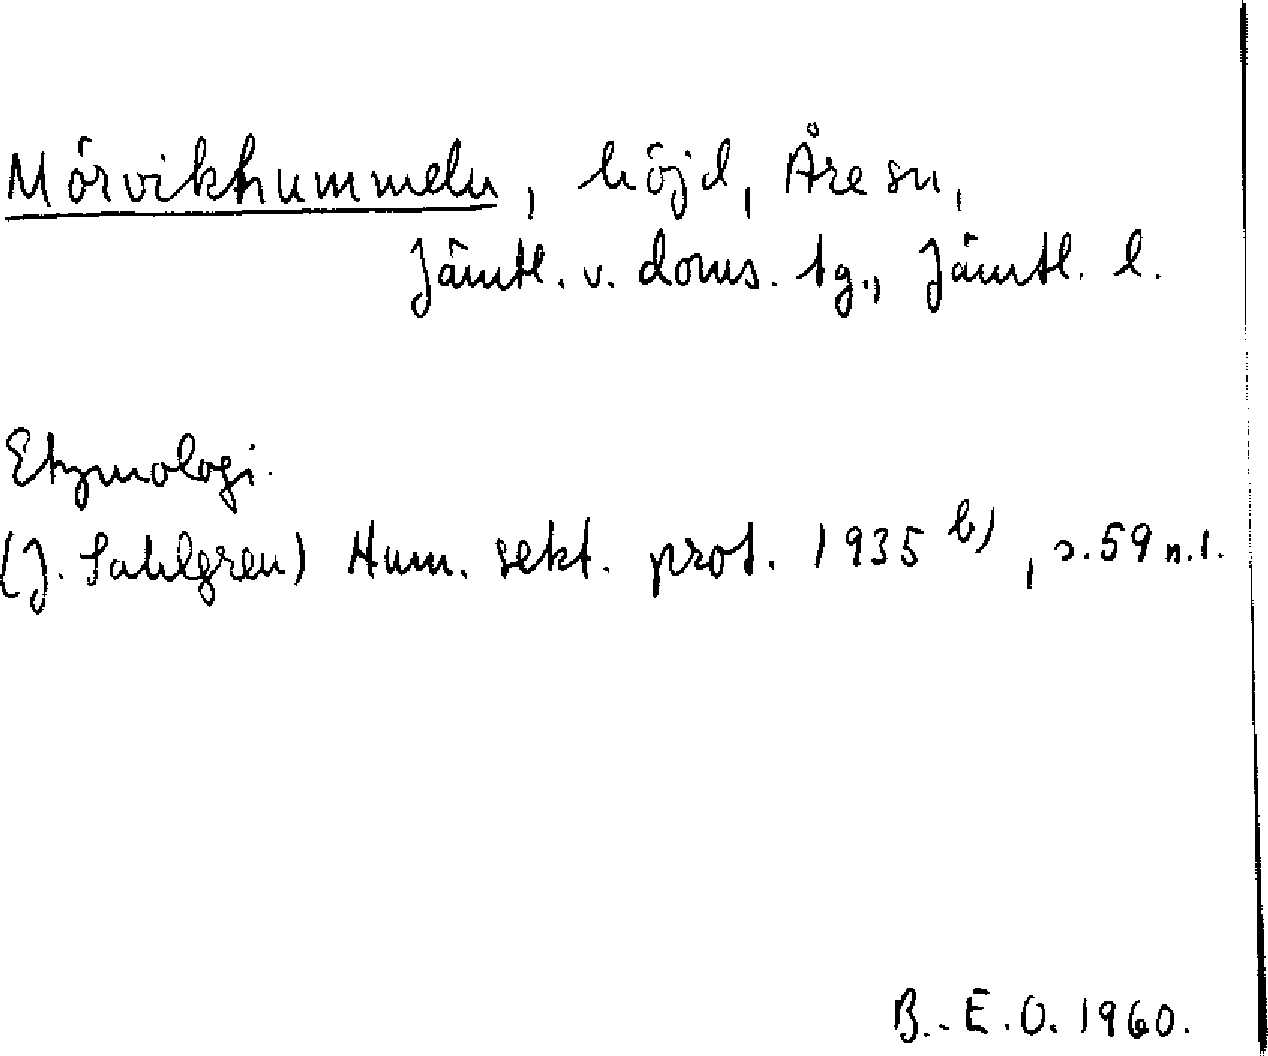 Mörvikhummeln, höjd, Åre sn,
Jämtl. v. doms. tg., Jämtl. l.
Etymologi.
(J. Sahlgren) Hum. sekt. prot. 1935 b), s. 59 n. 1.
B.-E.O. 1960.